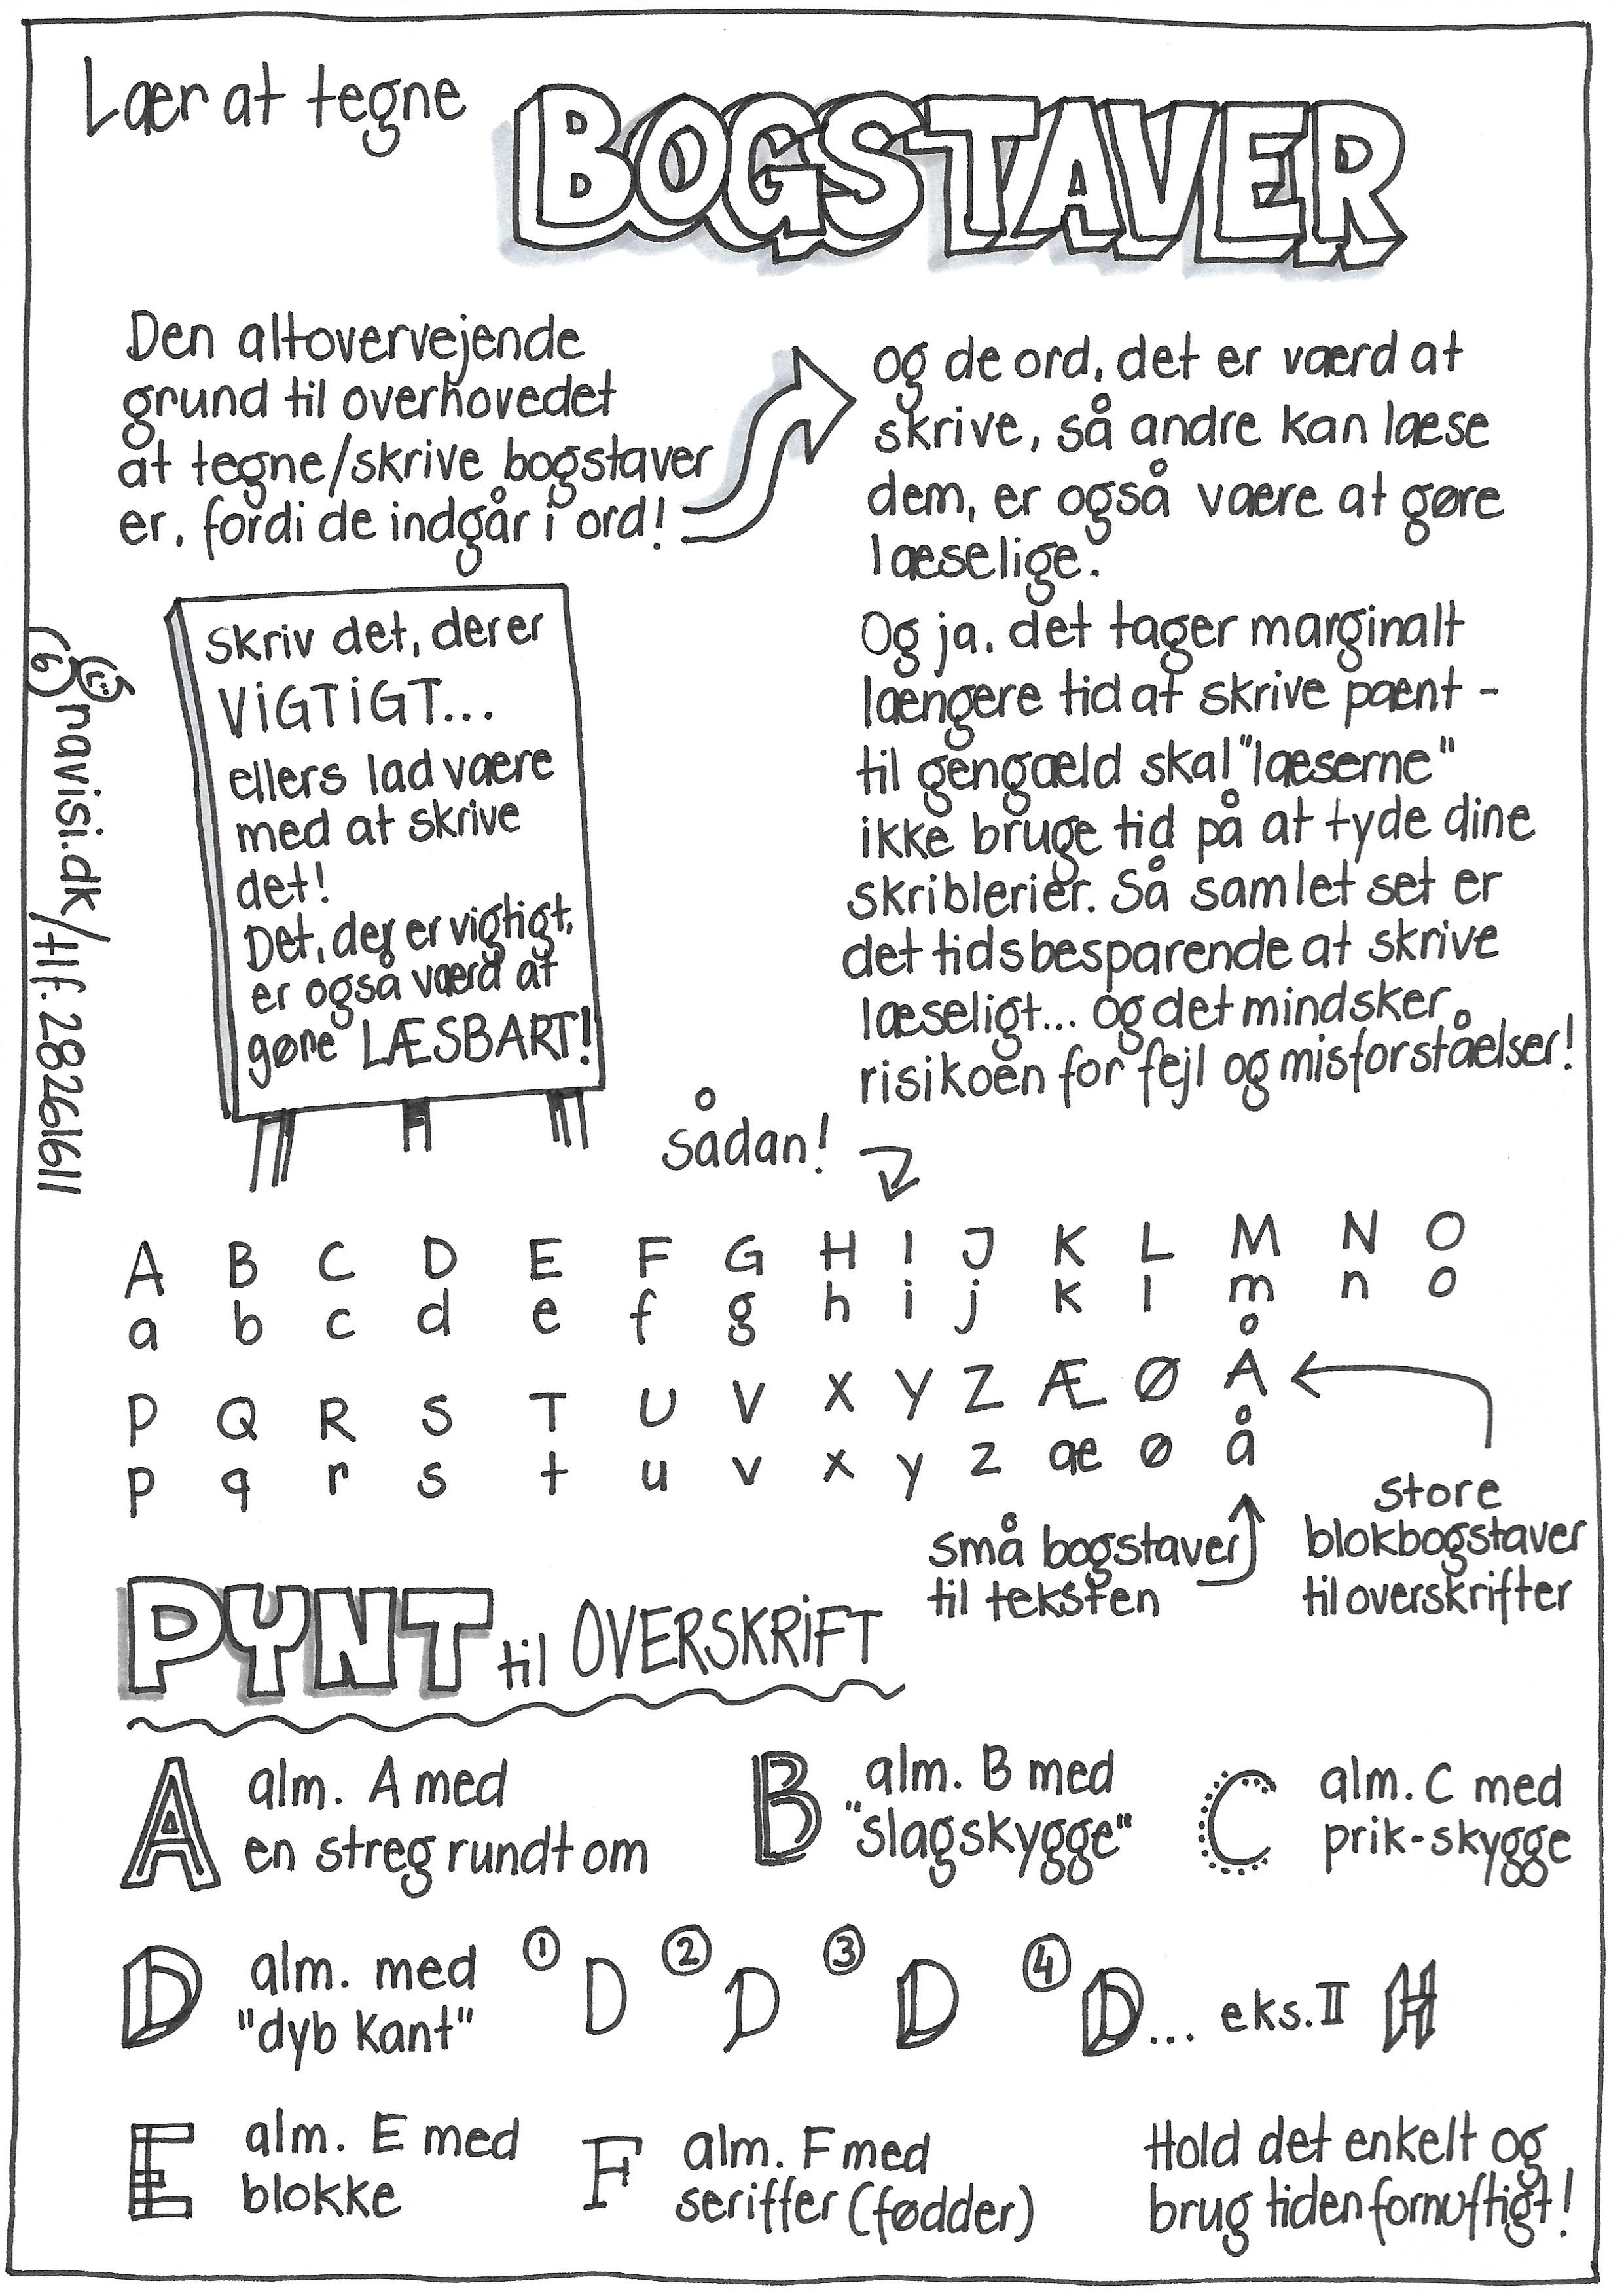 Lær at tegne BOGSTAVER
Den altovervejende
grund til overhovedet
at tegne/skrive bogstaver
er, fordi de indgår i ord!
og de ord, det er værd at
skrive, så andre kan læse
dem, er også være at gøre
læselige.
Og ja, det tager marginalt
længere tid at skrive pænt -
til gengæld skal "læserne"
ikke bruge tid på at tyde dine
skriblerier. Så samlet set er
det tidsbesparende at skrive
læseligt... og det mindsker
risikoen for fejl og misforståelser!
Skriv det, der er
ViGTiGT...
ellers lad være
med at skrive
det!
Det, der er vigtigt,
er også værd at
gøre LÆSBART!
navisi.dk/tlf. 28261611
Sådan!
A B C D E F G H I J K L M N O
a b c d e f g h i j k l m n o
P Q R S T U V X Y Z Æ Ø Å
p q r s t u v x y z æ ø å
små bogstaver
til teksten
store
blokbogstaver
til overskrifter
PYNT til OVERSKRiFT
A alm. A med
en streg rundt om
B alm. B med
"slagskygge"
C alm. C med
prik-skygge
D alm. med
"dyb kant"
1 D 2 D 3 D 4 D... eks. II H
E alm. E med
blokke
F alm. F med
seriffer (fødder)
Hold det enkelt og
brug tiden fornuftigt!